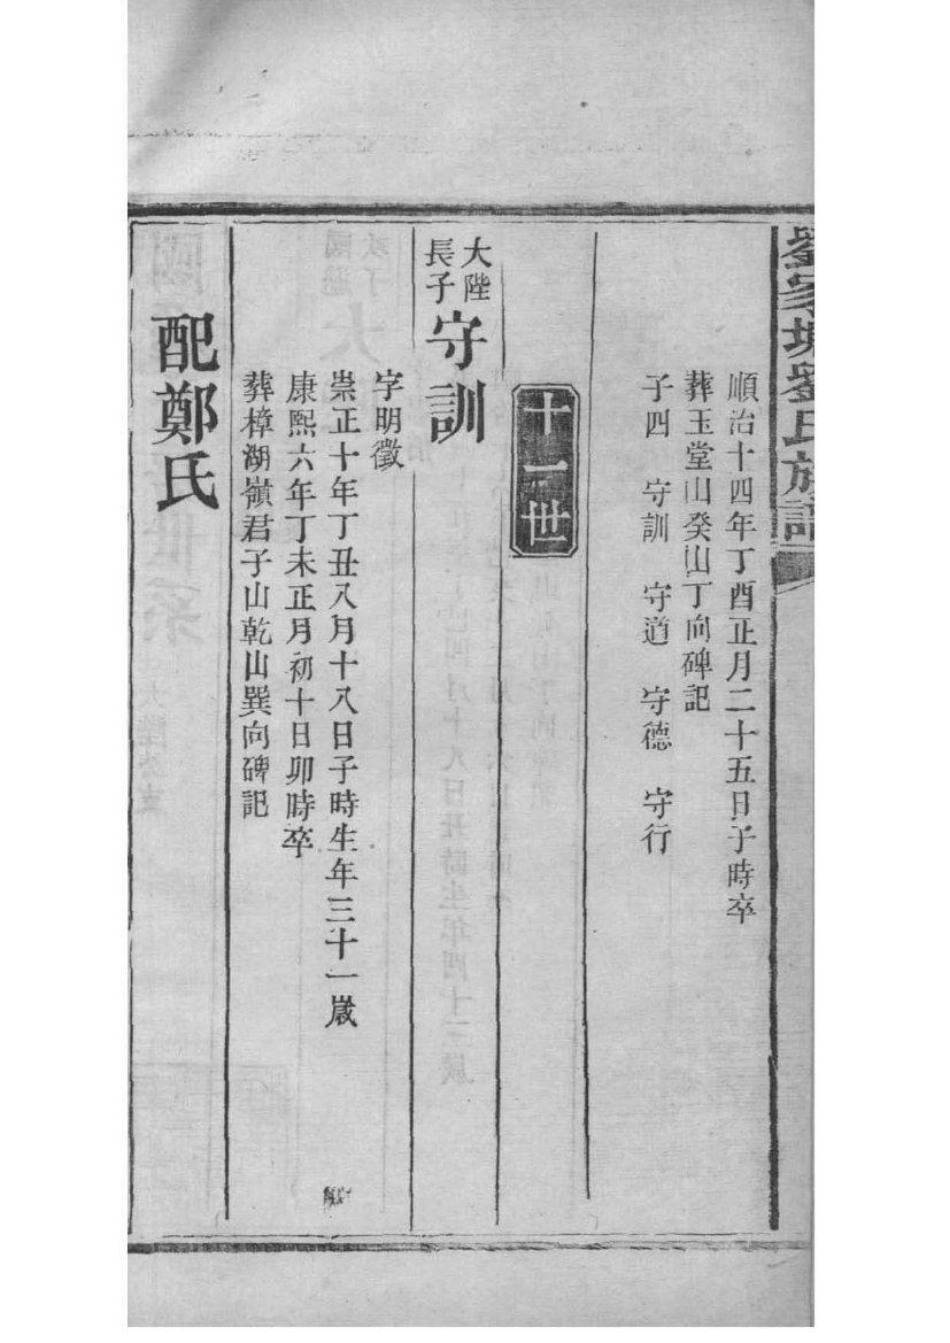 劉家塘劉氏族譜
順治十四年丁酉正月二十五日子時卒
葬玉堂山癸山丁向碑記
子四 守訓 守道 守德 守行
十一世
大陛
長子
守訓
字明徵
崇正十年丁丑八月十八日子時生年三十一歲
康熙六年丁未正月初十日卯時卒
葬樟湖嶺君子山乾山巽向碑記
配鄭氏